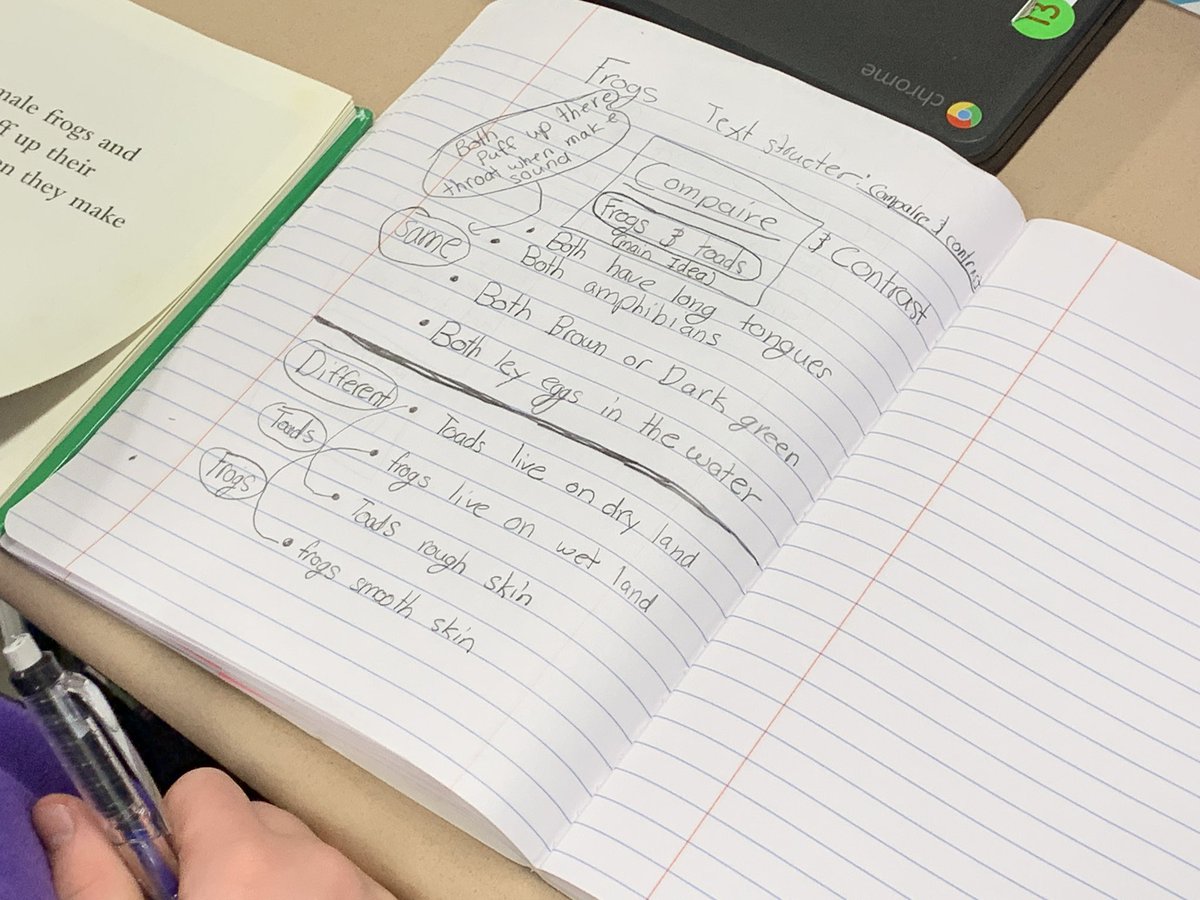 male frogs and
ff up their
en they make
chrome
13
Frogs
Text structer: Compaire & contrast
Both
Puff up there
throat when make
sound
Compaire
& Contrast
Frogs & toads
(main Idea)
Same
• Both have long tongues
• Both amphibians
• Both Brown or Dark green
• Both ley eggs in the water
Different
• Toads live on dry land
Toads
• frogs live on wet land
Frogs
• Toads rough skin
• frogs smooth skin